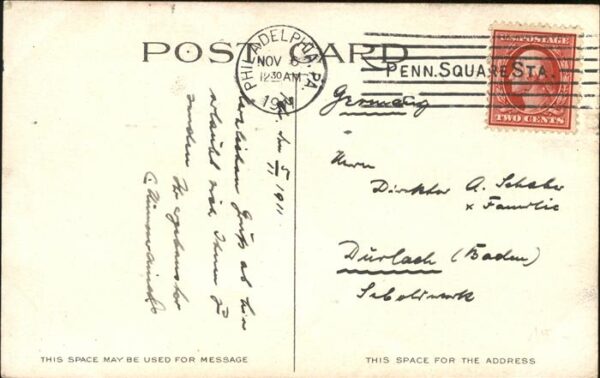 POST CARD
PHILADELPHIA, PA.
NOV 6
12 30 AM
PENN. SQUARE STA.
U.S. POSTAGE
TWO CENTS
den 5/11 1911
herzlichen Gruß
erlaubt sich Ihnen zu
senden Ihr ergebenster
Germany
Herrn
Direktor A.
& Familie
Durlach (Baden)
THIS SPACE MAY BE USED FOR MESSAGE
THIS SPACE FOR THE ADDRESS